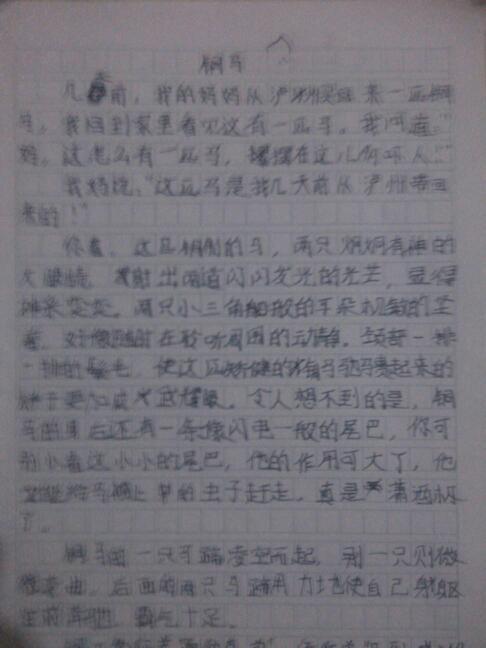 铜马
几前，我的妈妈从泸州买回来一匹铜
马。我回到家里看见这有一匹马。我问道：“
妈，这怎么有一匹马，摆在这儿吓人！”
我妈说：“这匹马是我几天前从泸州带回
来的！”
你看，这匹铜制的马，两只炯炯有神的
大眼睛，发射出两道闪闪发光的光芒，显得
两只小三角形般的耳朵机敏的竖
着，好像随时在聆听周围的动静。颈部一排
一排的鬃毛，使这匹矫健的马骑起来的
样子更加威武耀眼。令人想不到的是，铜
马的身后还有一条像闪电一般的尾巴，你可
别小看这小小的尾巴，他的作用可大了，他
能给马的虫子赶走。真是潇洒极
了。
铜马的一只马蹄凌空而起，别一只则微
微弯曲。后面的两只马蹄用力地使自己身躯
往前奔驰，霸气十足。